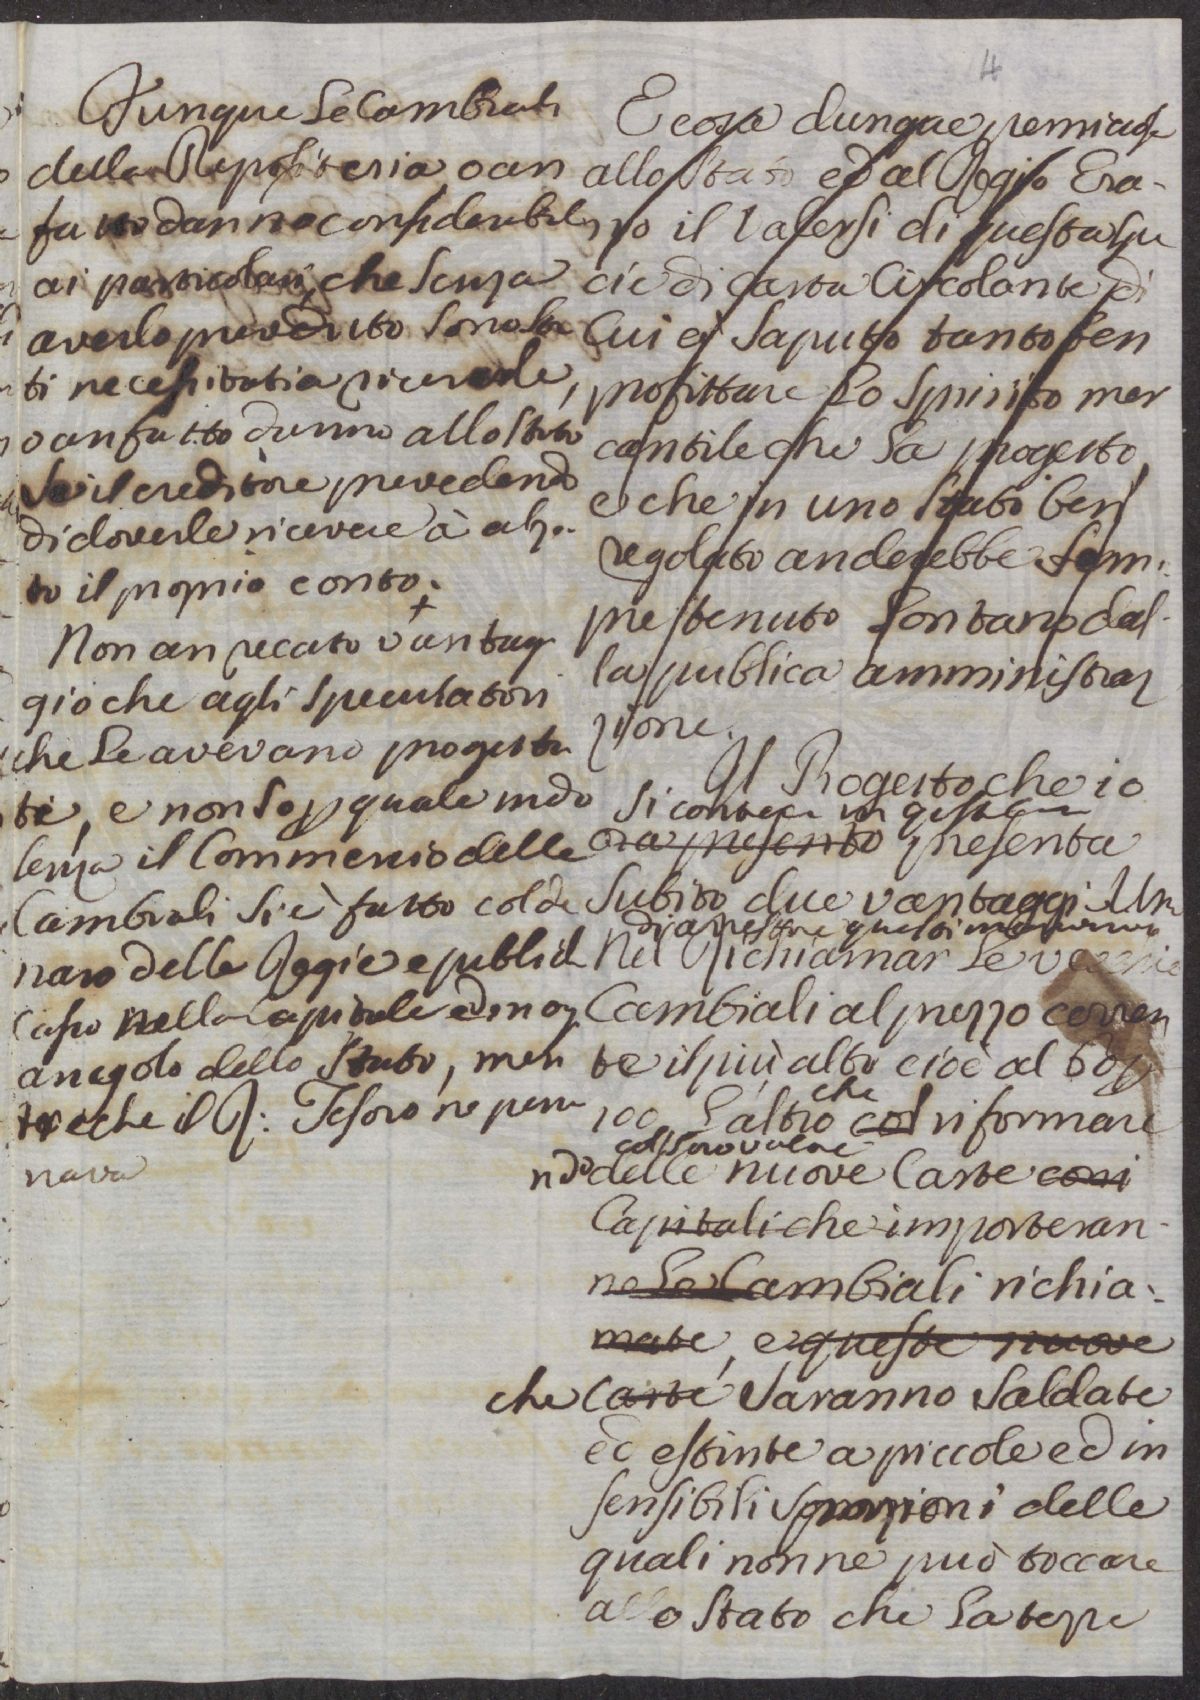 4
Dunque le Cambiali
della Repositeria o an
fatto danno considerabile
ai particolari, che senza
averlo preveduto sono sta
ti necessitati a riceverle,
o an fatto danno allo stato
se il creditore prevedendo
di doverle ricevere à alza
to il proprio conto. +
Non an recato vantag
gio che agli speculatori
che le avevano progetta
te, e non so p quale indo
lenza il Commercio delle
Cambiali si è fatto col de
naro delle Regie e publich
Casse nella Capitale ed in og
angolo dello Stato, men
tre che il R: Tesoro ne penu
nava
E cosa dunque perniciosa
allo Stato ed al Regio Era-
rio il Valersi di questa spe
cie di Carta Circolante di
cui à saputo tanto ben
profittare lo spirito mer
cantile che la progettò,
e che in uno Stato ben
regolato anderebbe sem-
pre tenuto lontano dal-
la publica amministra
zione.
Il Progetto che io
si contiene in questa
ora presento presenta
subito due vantaggi Un
Nel Richiamar le vecchie
Cambiali al prezzo corren
te il più alto cioè al 60 p
100 L'altro che col riformare
ndo delle nuove Carte coni
Capitali che importeran-
no le Cambiali richia-
mate, e queste nuove
che Carte saranno saldate
ed estinte a piccole ed in
sensibili porzioni delle
quali non ne può toccare
allo Stato che la terza